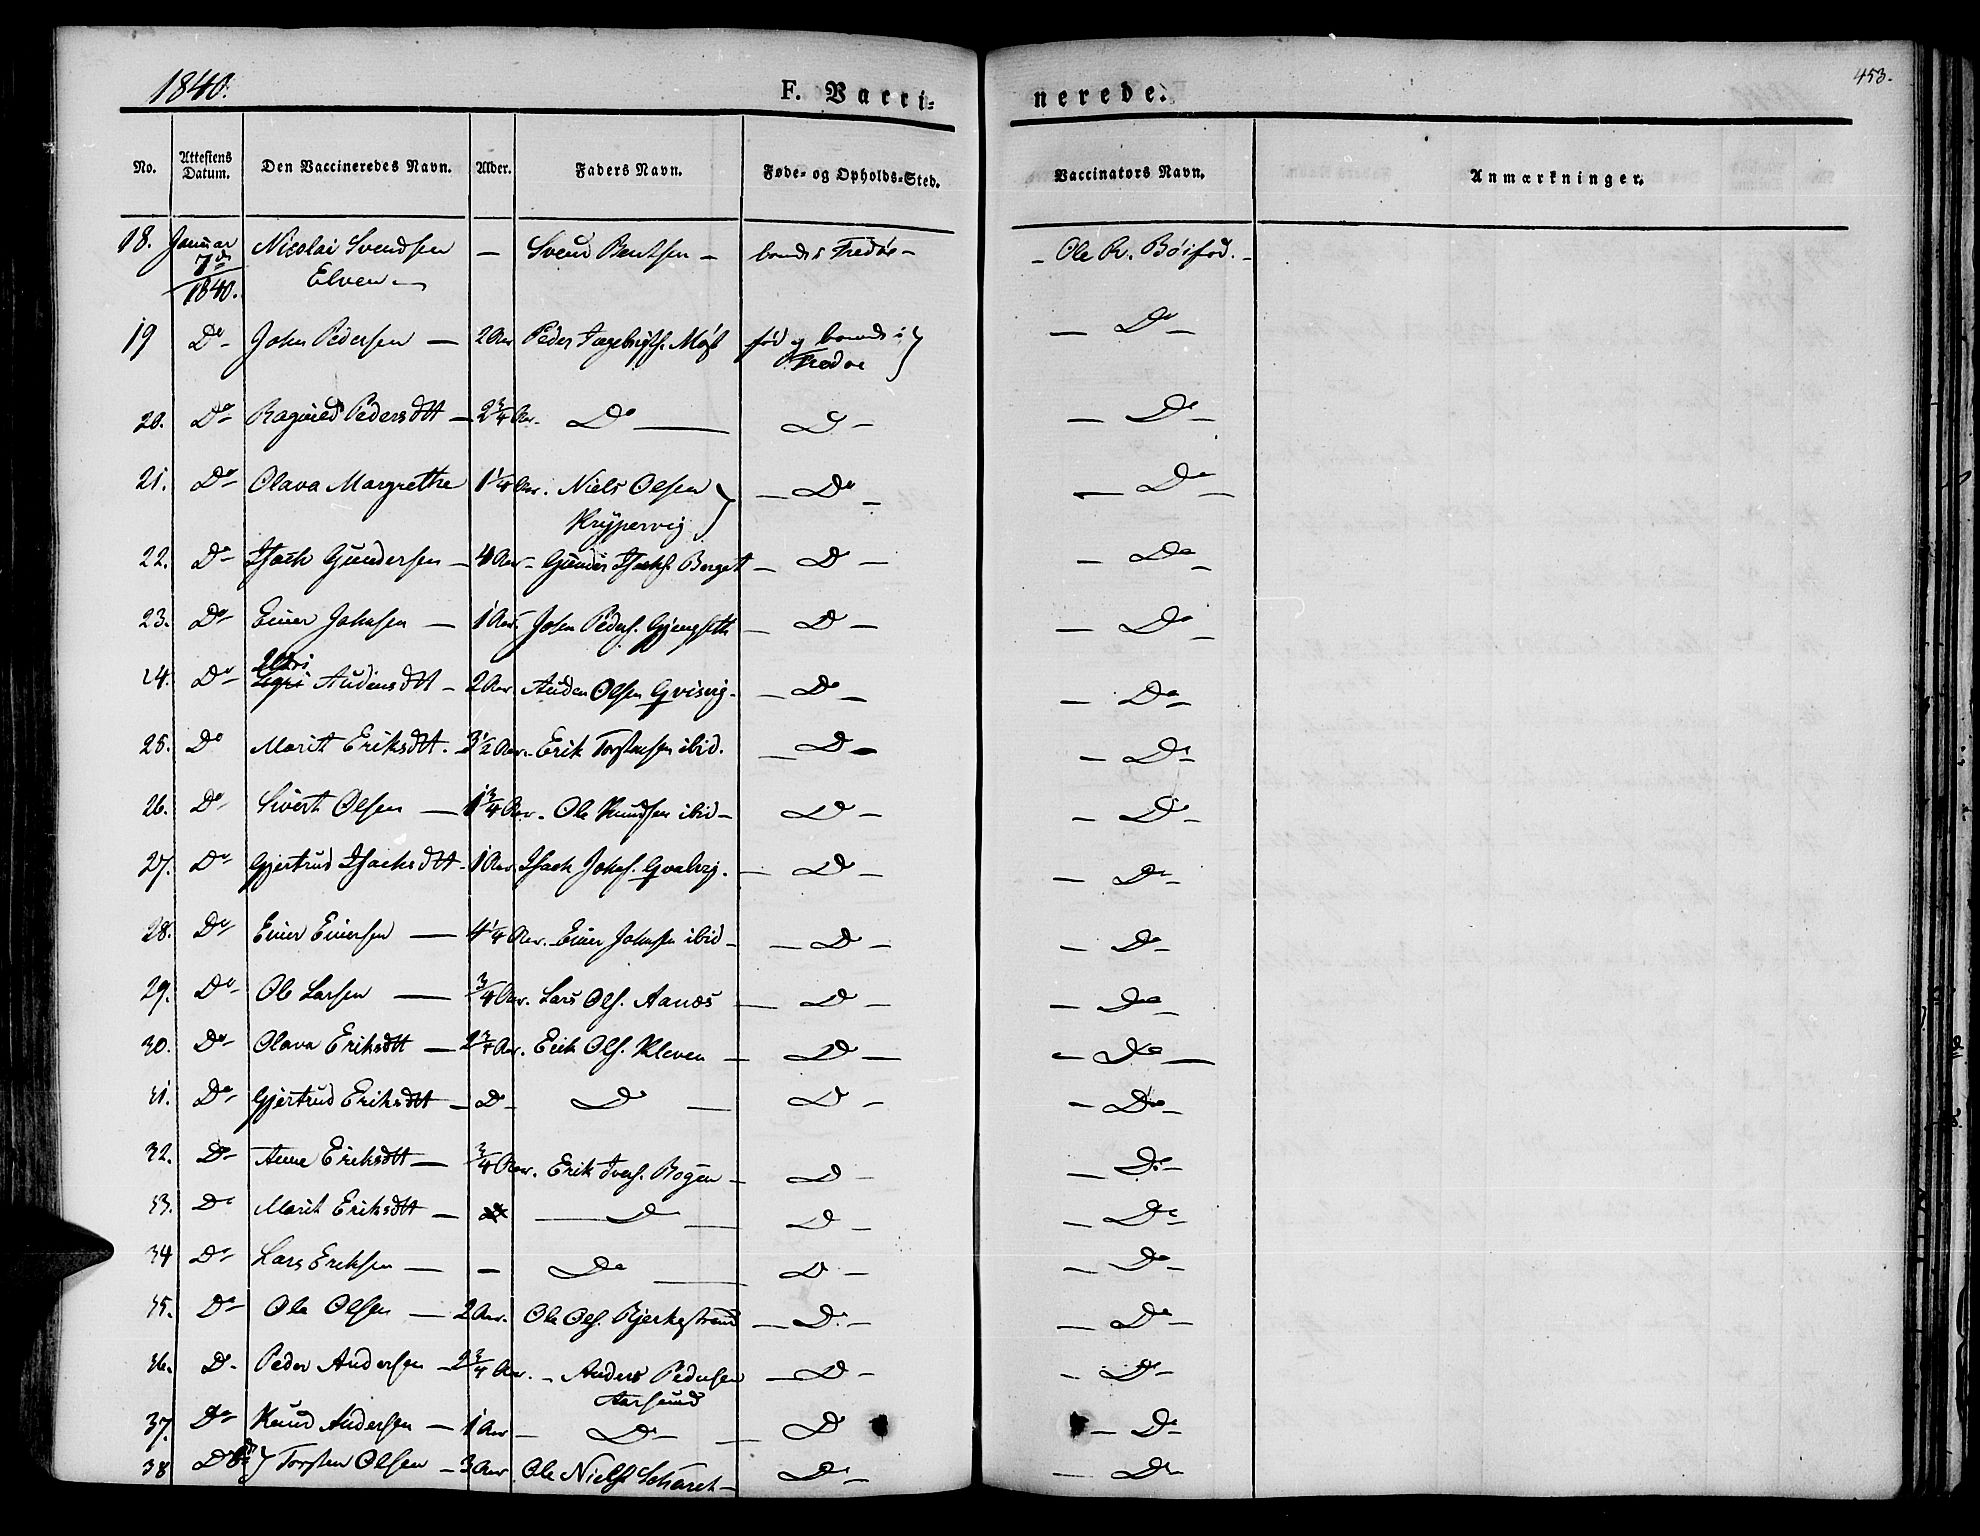 1840.
F. Vacci-
nerede.
453.
No. Attestens Datum. Den Vaccineredes Navn. Alder. Faders Navn. Føde- og Opholds-Sted. Vaccinators Navn. Anmærkninger.
18. Januar Nicolai Svendsen — Svend Bentsen — boende i Fredøe — — Ole R. Böifod. —
7de Elven —
1840.
19 Do — John Pedersen — 2 Aar Peder Møst fød og boende i — Do —
Fredøe
20. Do — Ragnild Pedersdtt — 2 3/4 Aar. Do — Do — — Do —
21. Do — Olava Margrethe 1 1/4 Aar. Niels Olsen — Do — — Do —
Krypervig
22. Do — Isach Gundersen — 4 Aar — Gunder Isachs. Berget — Do — — Do —
23. Do — Einer Johnsen — 1 Aar. John Peders. Gjengseth — Do — — Do —
24. Do — Audensdtt — 2 Aar. Auden Olsen Qvisvig. — Do — — Do —
25. Do Marit Eriksdtt. 3 1/2 Aar. Erik Torstensen ibid. — Do — — Do —
26. Do — Sivert Olsen — 1 3/4 Aar. Ole Knudsen ibid — Do — — Do —
27. Do — Gjertrud Isachsdtt. 1 Aar. Isach Johns. Qvalvig. — Do — — Do —
28. Do — Einer Einersen — 4 1/4 Aar. Einer Johnsen ibid — — Do — — Do —
29. Do — Ole Larsen — 3/4 Aar. Lars Ols. Aanes — Do — — Do —
30. Do — Olava Eriksdtt — 2 3/4 Aar. Erik Ols. Kleven — Do — — Do —
31. Do — Gjertrud Eriksdtt — Do — Do — Do — — Do —
32. Do — Anne Eriksdtt — 3/4 Aar. Erik Ivers. Bogen — Do — — Do —
33. Do Marit Eriksdtt — — Do — Do — — Do —
34 Do — Lars Eriksen — — Do — Do — — Do —
35. Do — Ole Olsen — 2 Aar. Ole Ols. Bjerkestrand — Do — — Do —
36. Do — Peder Andersen — 2 3/4 Aar. — Anders Pedersen — Do — — Do —
Aarsund
37. Do — Knud Andersen — 1 Aar — Do — — Do — Do —
38 Do Torsten Olsen — 3 Aar Ole Niels. — Do — — Do —